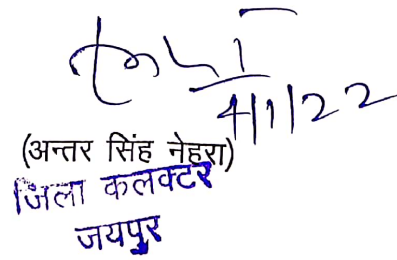 4/1/22
(अन्तर सिंह नेहरा)
जिला कलक्टर
जयपुर